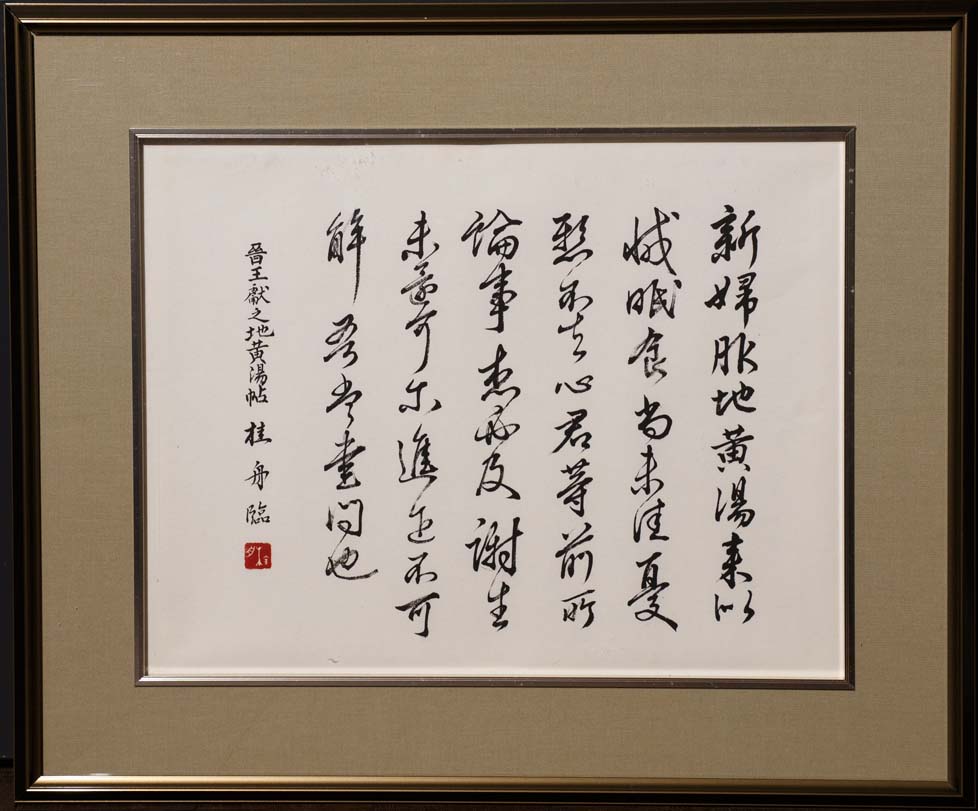 新婦服地黄湯来似
減眠食尚未佳憂
懸不去心君等前所
論事想必及謝生
未還可尓進退不可
解吾当書問也
晉王獻之地黄湯帖 桂舟臨